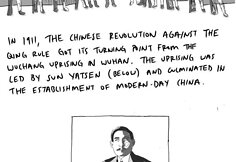 IN 1911, THE CHINESE REVOLUTION AGAINST THE
QING RULE GOT ITS TURNING POINT FROM THE
WUCHANG UPRISING IN WUHAN. THE UPRISING WAS
LED BY SUN YATSEN (BELOW) AND CULMINATED IN
THE ESTABLISHMENT OF MODERN-DAY CHINA.